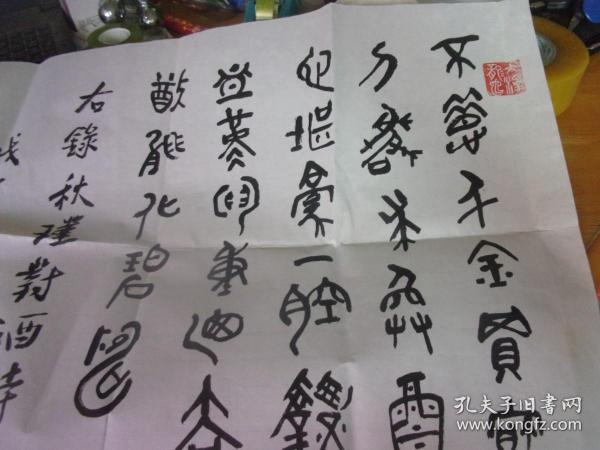 不惜千金買寶
刀貂裘換酒
也堪豪一腔熱
血勤珍重灑去
猶能化碧濤
右錄秋瑾對酒
孔夫子旧书网
www.kongfz.com